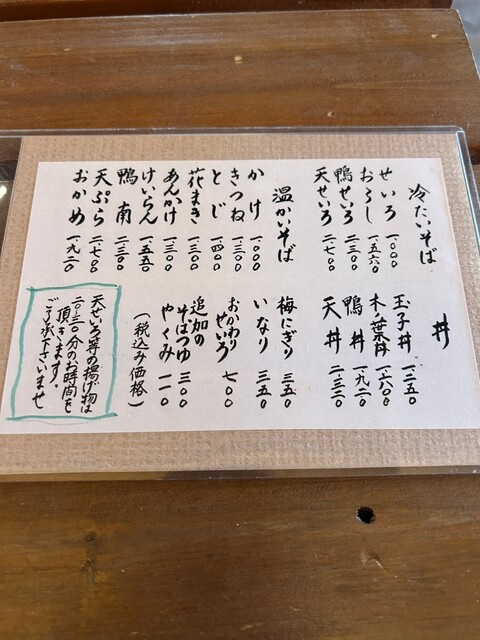 冷たいそば
せいろ 一.〇〇〇
おろし 一.五六〇
鴨せいろ 二.三〇〇
天せいろ 二.七〇〇
温かいそば
かけ 一.〇〇〇
きつね 一.三〇〇
とじ 一.四〇〇
花まき 一.三〇〇
あんかけ 一.三〇〇
けいらん 一.五五〇
鴨南 二.三〇〇
天ぷら 二.七〇〇
おかめ 一.九二〇
丼
玉子丼 一.二五〇
木の葉丼 一.六八〇
鴨丼 一.九二〇
天丼 二.三二〇
梅にぎり 三五〇
いなり 三五〇
おかわりせいろ 七〇〇
追加の
そばつゆ 三〇〇
やくみ 一一〇
(税込み価格)
天せいろ等の揚げ物は
二〇.三〇分のお時間を
頂きます。
ご了承下さいませ